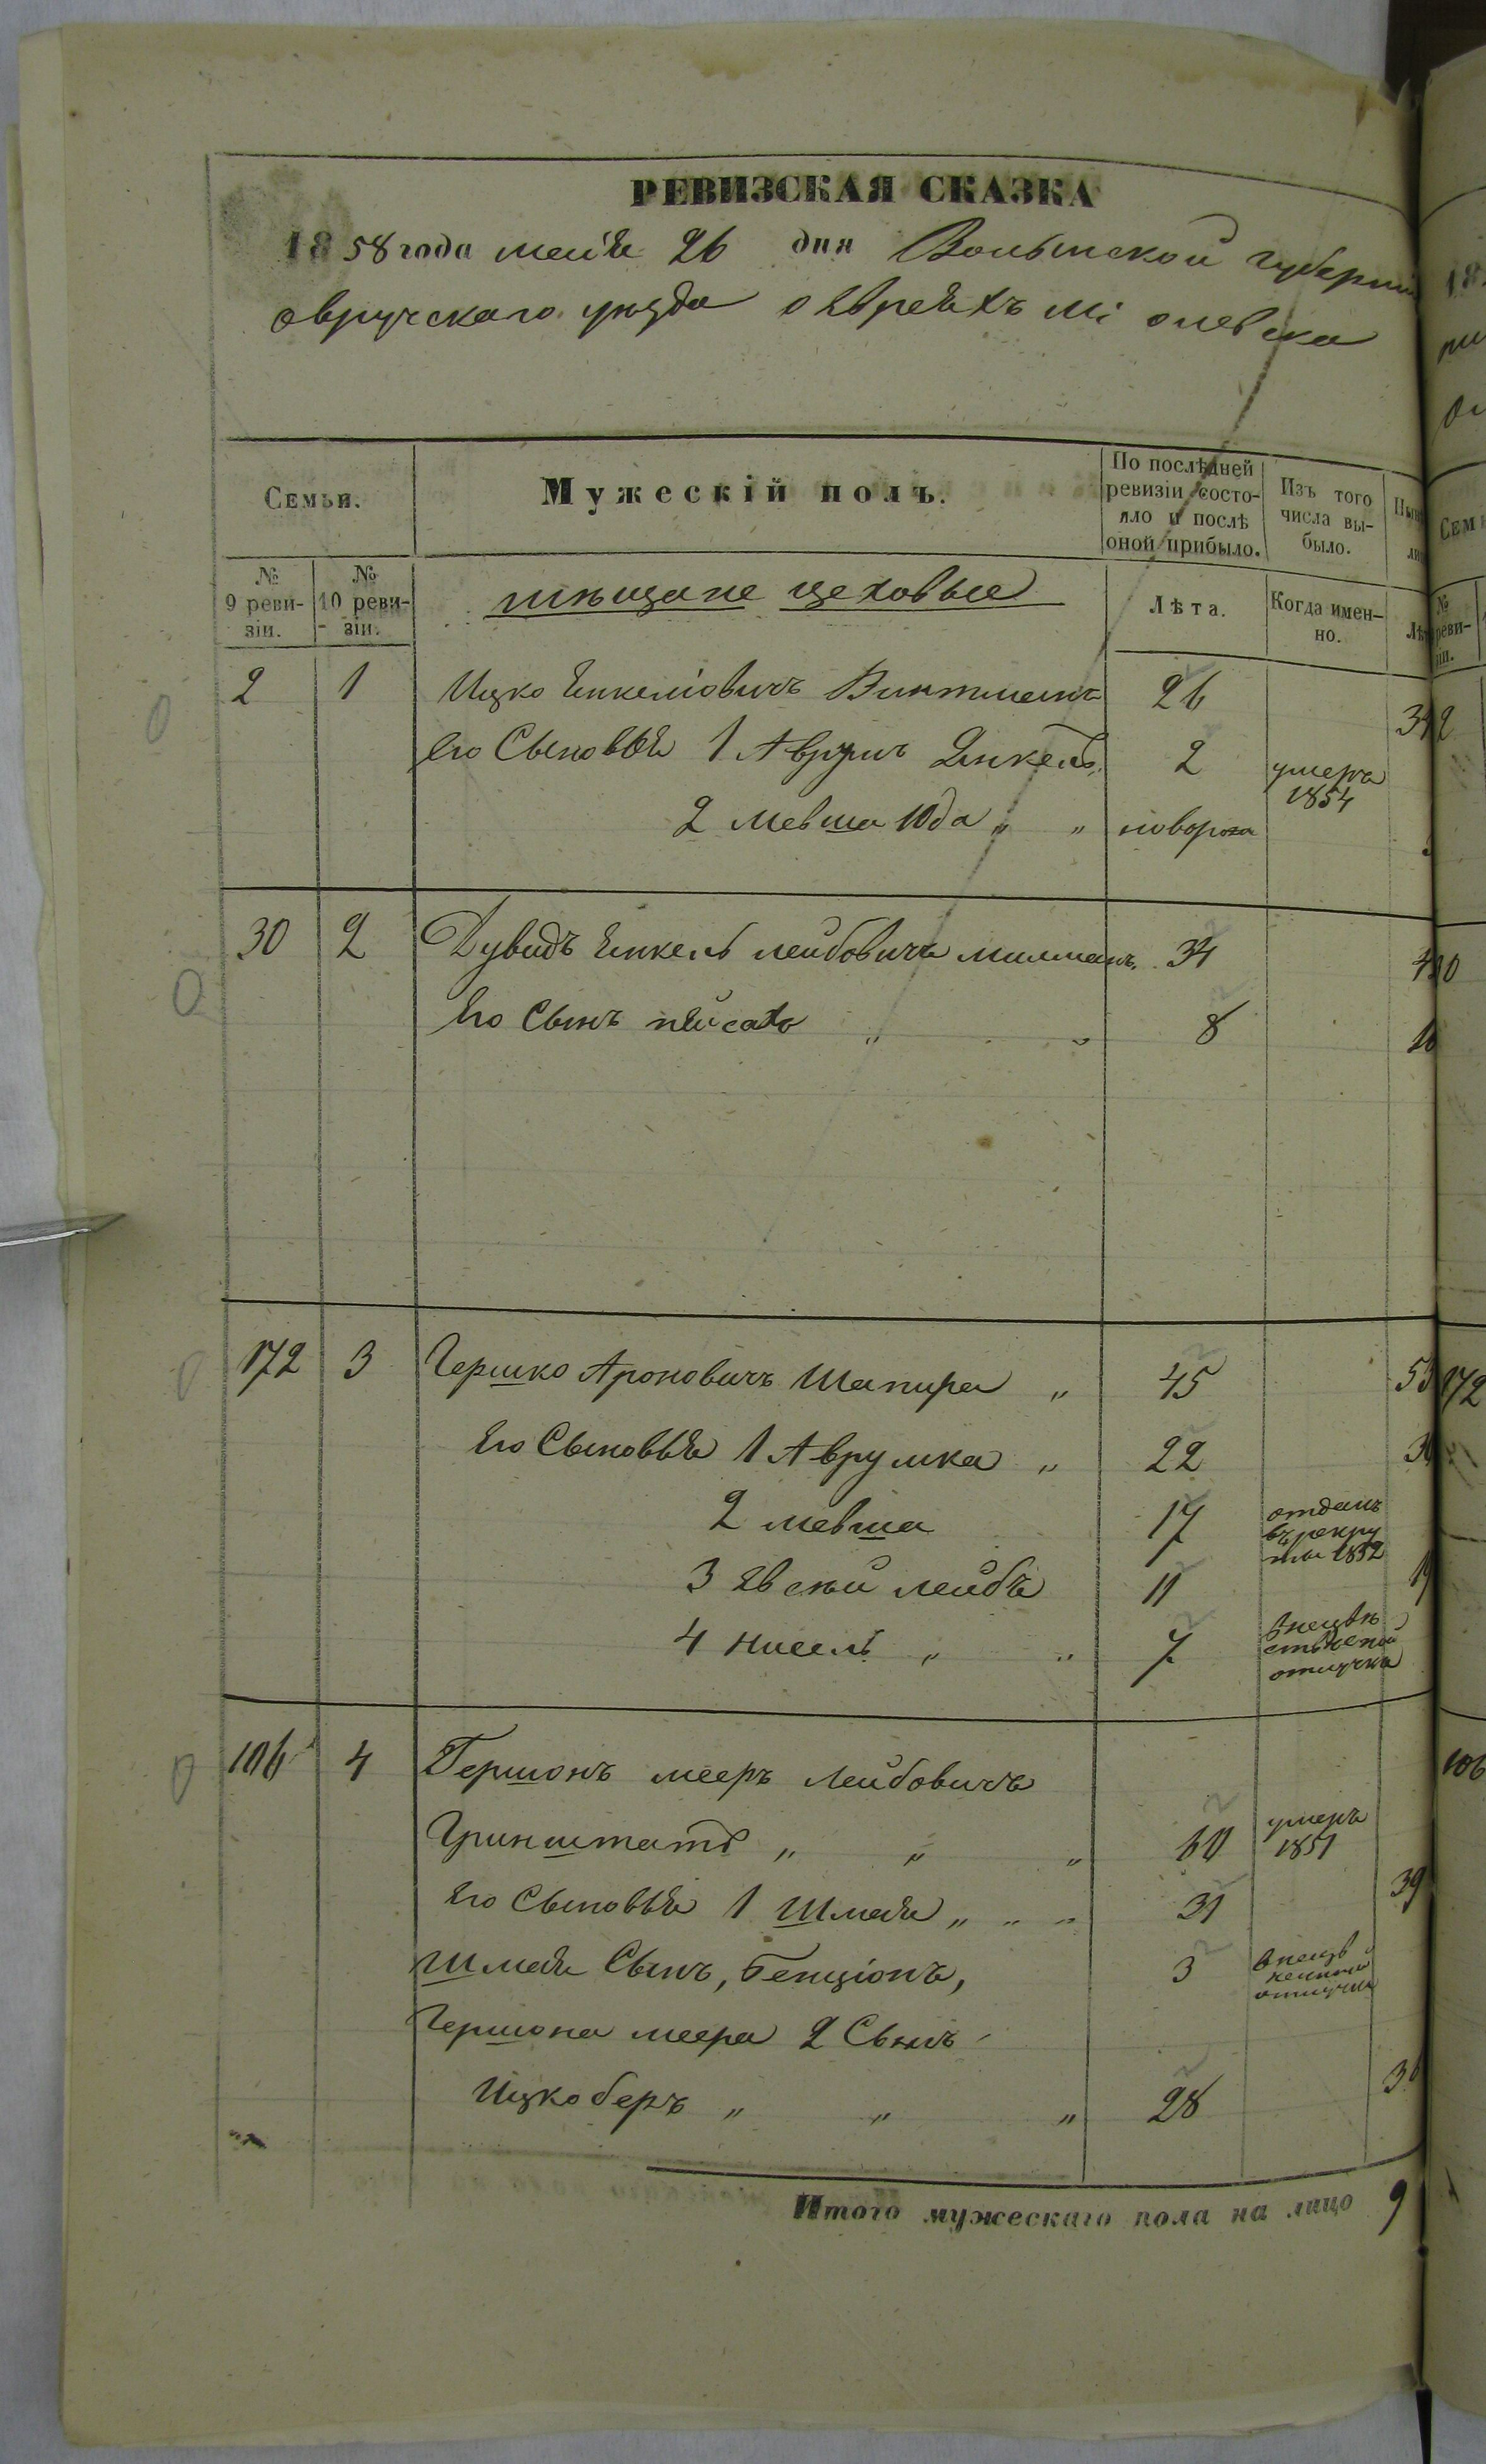 РЕВИЗСКАЯ СКАЗКА
1858 года мая 26 дня Волынской губерніи
овручскаго уѣзда о Евреяхъ м: олевска
Семьи.
Мужескій полъ.
По послѣдней ревизіи состояло и послѣ оной прибыло.
Изъ того числа выбыло.
№ 9 ревизіи.
№ 10 ревизіи.
мѣщане цеховые
Лѣта.
Когда именно.
2 1 Ицко Янкелiовичъ 26
Его Сыновья 1 Аврумъ Янкель 2 умеръ 1854
2 мевша Юда „ „ новорож
30 2 Дувидъ Янкель лейбовичъ милманъ 34
Его Сынъ пейсахъ „ „ 8
172 3 Гершко Ароновичъ Шапира „ 45 53
Его Сыновья 1 Аврумка „ 22 30
2 мевша 17 отданъ въ рекруты 1852
3 Евсѣй лейбъ 11 19
4 нисель „ „ 7 отлучки
106 4 Гершонъ мееръ лейбовичъ
Гринштатъ „ „ „ 60 умеръ 1851
Его Сыновья 1 Шмая „ „ „ 31 39
Шмая Сынъ, Бенціонъ, 3 отлучки
Гершона меера 2 Сынъ
Ицко беръ „ „ „ 28 36
Итого мужескаго пола на лицо 9